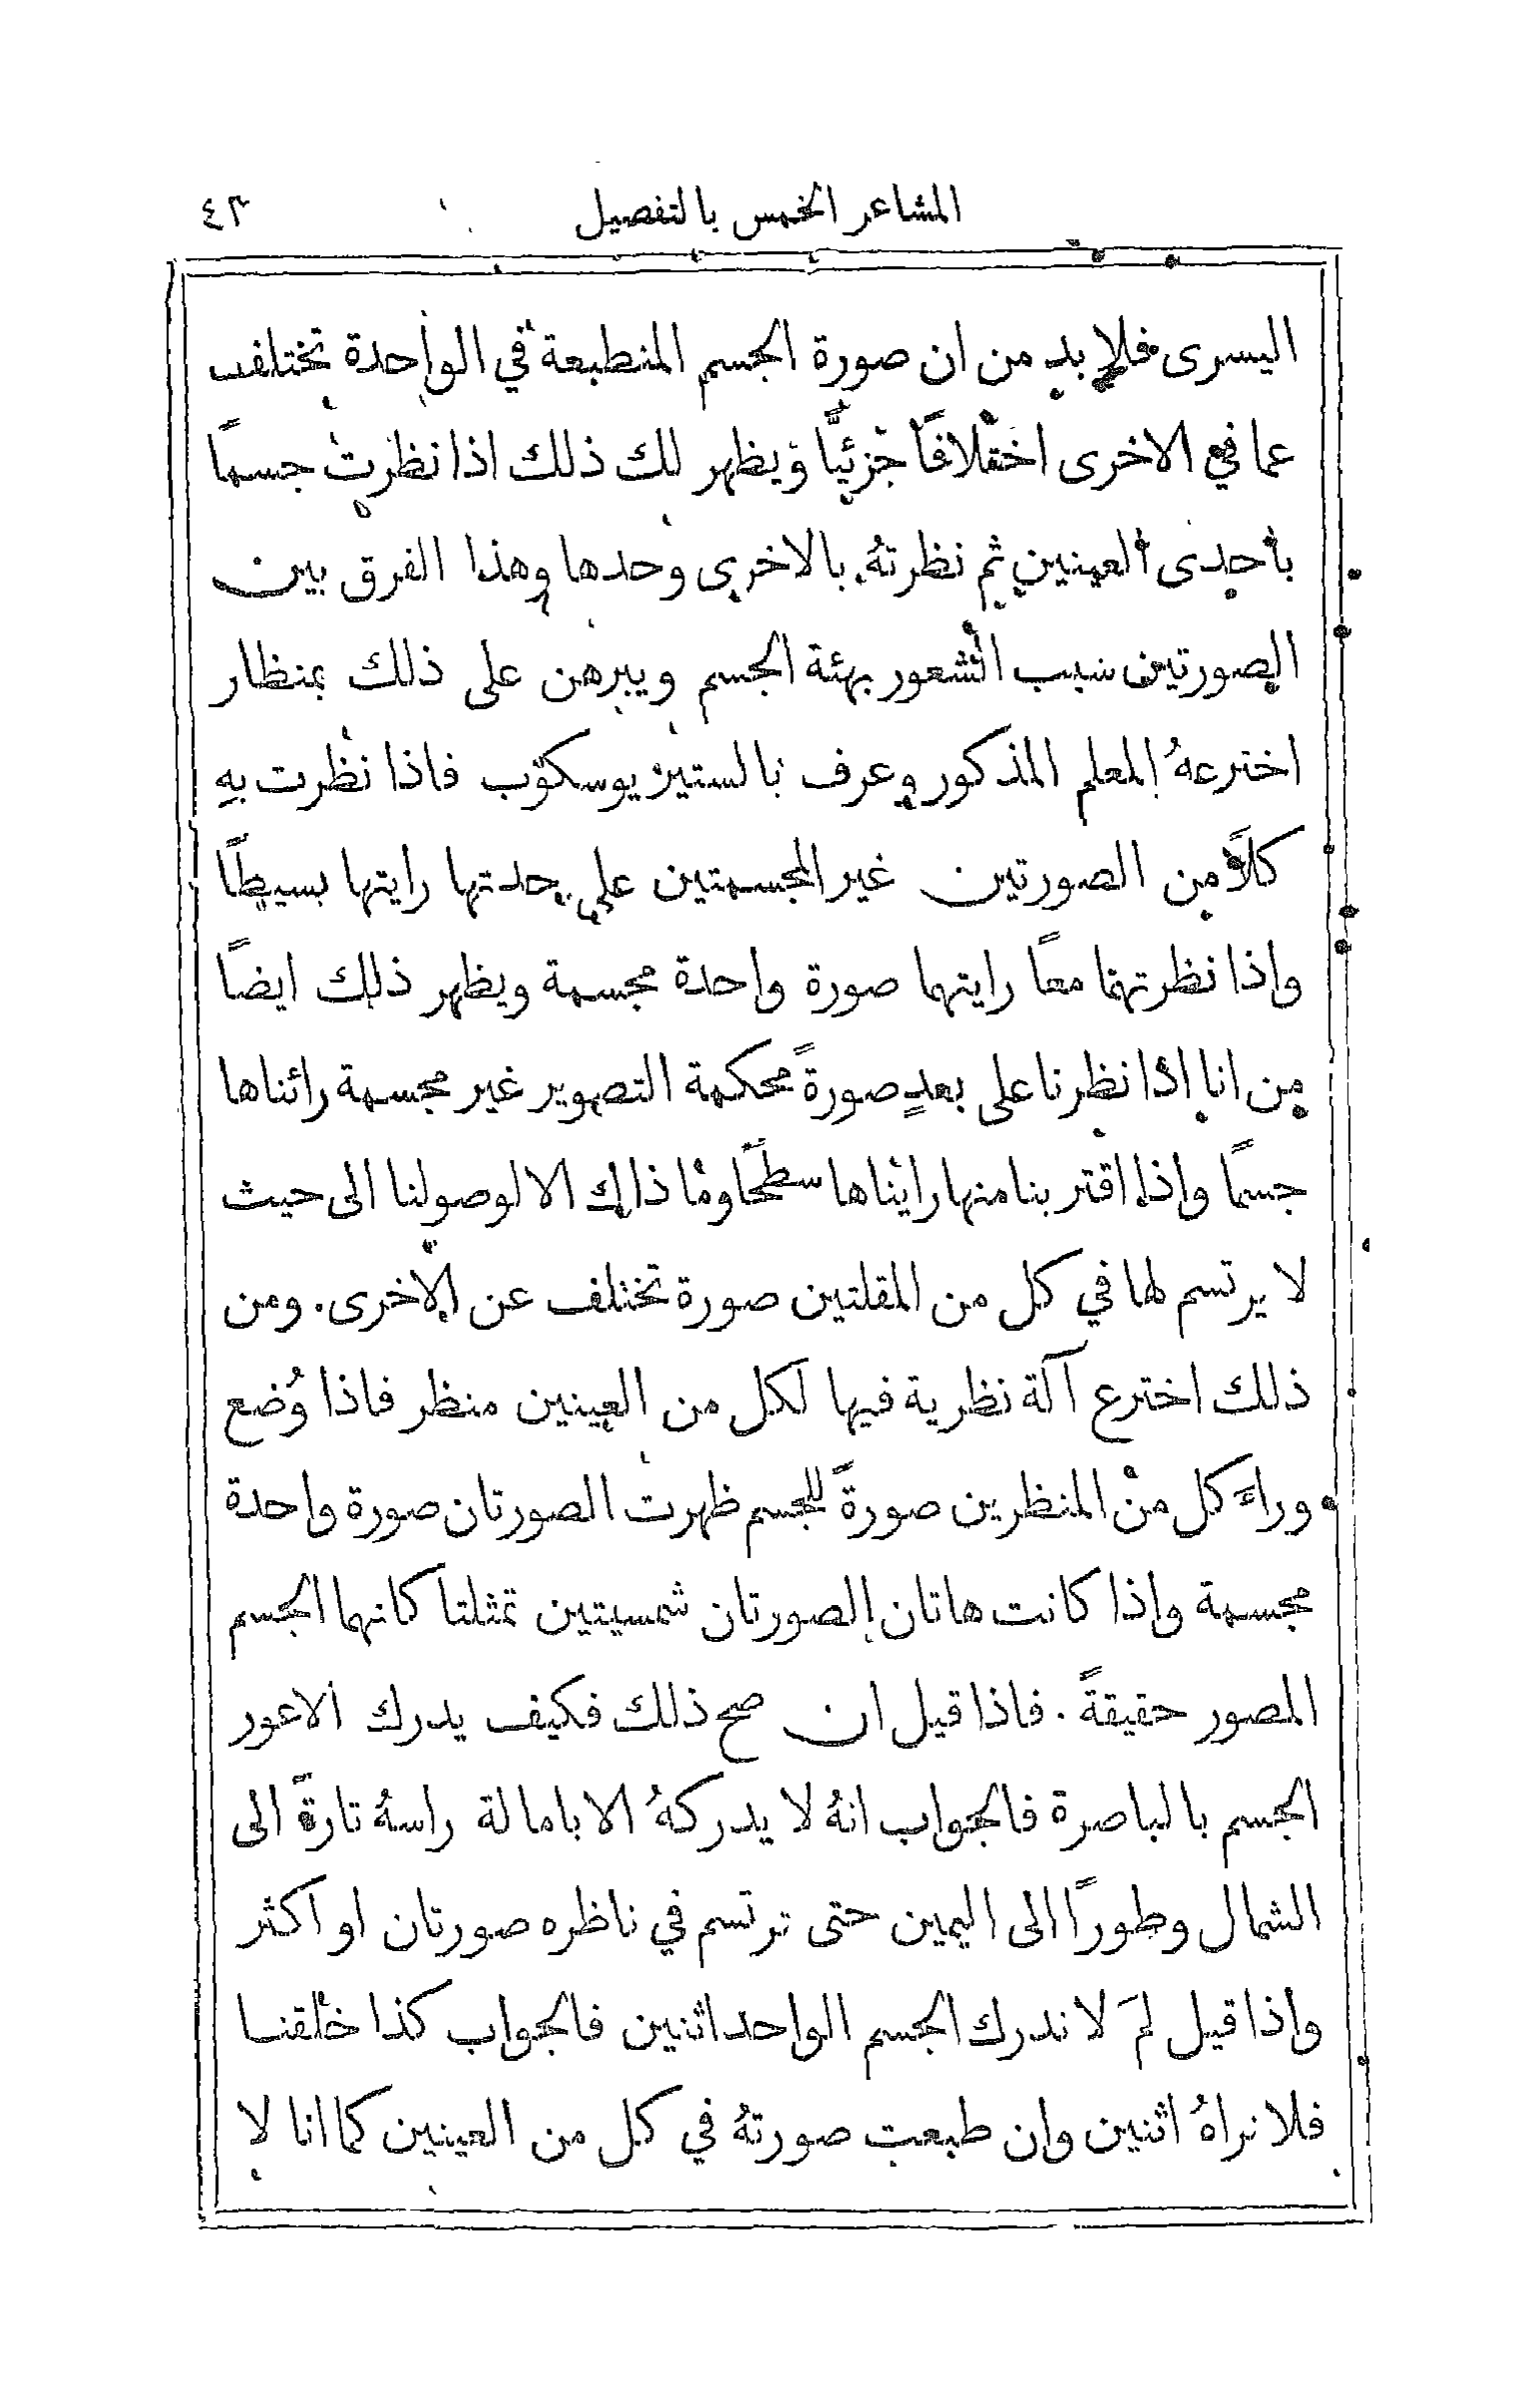 المشاعر الخمس بالتفصيل ٤٣
اليسرى فلا بد من ان صورة الجسم المنطبعة في الواحدة تختلف
عما في الاخرى اختلافًا جزئيًّا ويظهر لك ذلك اذا نظرت جسمًا
باحدى العينين ثم نظرتهُ بالاخرى وحدها وهذا الفرق بين
الصورتين سبب الشعور بهئة الجسم ويبرهن على ذلك بمنظار
اخترعهُ المعلم المذكور وعرف بالستيريوسكوب فاذا نظرت بهِ
كلًّا من الصورتين غير المجسمتين على حدتها رايتها بسيطًا
واذا نظرتهما معًا رايتهما صورة واحدة مجسمة ويظهر ذلك ايضًا
من انا اذا نظرنا على بعدٍ صورةً محكمة التصوير غير مجسمة رائناها
جسمًا واذا اقتربنا منها رايناها سطحًا وما ذالك الا لوصولنا الى حيث
لا يرتسم لها في كل من المقلتين صورة تختلف عن الاخرى. ومن
ذلك اخترع آلة نظرية فيها لكل من العينين منظر فاذا وُضع
وراءَ كل من المنظرين صورةً للجسم ظهرت الصورتان صورة واحدة
مجسمة واذا كانت هاتان الصورتان شمسيتين تمثلتا كانهما الجسم
المصور حقيقةً. فاذا قيل ان صح ذلك فكيف يدرك الاعور
الجسم بالباصرة فالجواب انهُ لا يدركهُ الا بامالة راسهُ تارةً الى
الشمال وطورًا الى اليمين حتى ترتسم في ناظره صورتان او اكثر
واذا قيل لمَ لا ندرك الجسم الواحد اثنين فالجواب كذا خلقنا
فلا نراهُ اثنين وان طبعت صورتهُ في كل من العينين كما انا لا